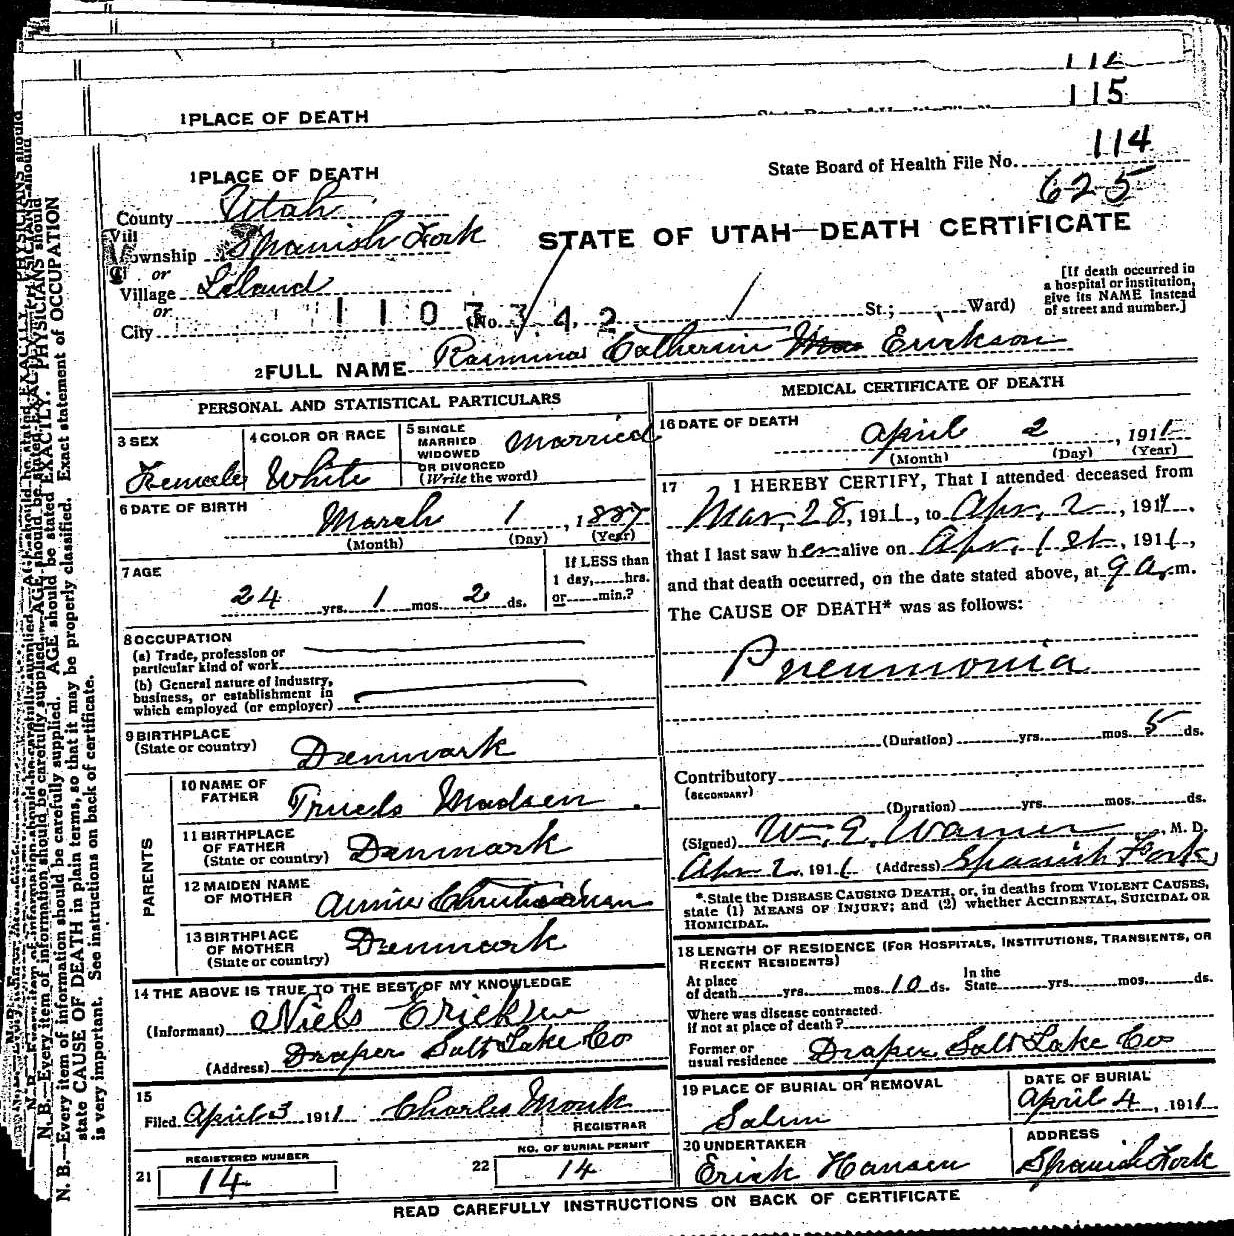 116
115
1 PLACE OF DEATH
114
1 PLACE OF DEATH
State Board of Health File No.
625
County Utah
Vill
Township Spanish Fork
STATE OF UTAH—DEATH CERTIFICATE
or
Village Leland
or
City
1107342
(No.
St.; Ward)
[If death occurred in
a hospital or institution,
give its NAME instead
of street and number.]
2 FULL NAME Rasmina Catherin Erickson
PERSONAL AND STATISTICAL PARTICULARS
3 SEX
Female
4 COLOR OR RACE
White
5 SINGLE
MARRIED
WIDOWED
OR DIVORCED
(Write the word)
Married
6 DATE OF BIRTH
March 1, 1887
(Month) (Day) (Year)
7 AGE
24 yrs. 1 mos. 2 ds.
If LESS than
1 day, hrs.
or min.?
8 OCCUPATION
(a) Trade, profession or
particular kind of work
(b) General nature of industry,
business, or establishment in
which employed (or employer)
9 BIRTHPLACE
(State or country) Denmark
PARENTS
10 NAME OF
FATHER Truels Madsen
11 BIRTHPLACE
OF FATHER
(State or country) Denmark
12 MAIDEN NAME
OF MOTHER Annie Christiansen
13 BIRTHPLACE
OF MOTHER
(State or country) Denmark
14 THE ABOVE IS TRUE TO THE BEST OF MY KNOWLEDGE
(Informant) Niels Ericksen
(Address) Draper Salt Lake Co
15
Filed April 3 1911 Charles Monk
REGISTRAR
REGISTERED NUMBER
21 14
NO. OF BURIAL PERMIT
22 14
MEDICAL CERTIFICATE OF DEATH
16 DATE OF DEATH
April 2, 1911
(Month) (Day) (Year)
17 I HEREBY CERTIFY, That I attended deceased from
Mar, 28, 1911, to Apr, 2, 1911.
that I last saw her alive on Apr, 1st, 1911,
and that death occurred, on the date stated above, at 9 a.m.
The CAUSE OF DEATH* was as follows:
Pneumonia
(Duration) yrs. mos. 5 ds.
Contributory
(SECONDARY)
(Duration) yrs. mos. ds.
(Signed) Wm. E. Warner, M. D.
Apr 2, 1911 (Address) Spanish Fork
*State the DISEASE CAUSING DEATH, or, in deaths from VIOLENT CAUSES,
state (1) MEANS OF INJURY; and (2) whether ACCIDENTAL, SUICIDAL OR
HOMICIDAL.
18 LENGTH OF RESIDENCE (FOR HOSPITALS, INSTITUTIONS, TRANSIENTS, OR
RECENT RESIDENTS)
At place
of death yrs. mos. 10 ds.
In the
State yrs. mos. ds.
Where was disease contracted.
if not at place of death?
Former or
usual residence Draper Salt Lake Co
19 PLACE OF BURIAL OR REMOVAL
Salem
DATE OF BURIAL
April 4, 1911
20 UNDERTAKER
Erick Hansen
ADDRESS
Spanish Fork
READ CAREFULLY INSTRUCTIONS ON BACK OF CERTIFICATE
N. B.—Every item of information should be carefully supplied. AGE should be stated EXACTLY. PHYSICIANS should
state CAUSE OF DEATH in plain terms, so that it may be properly classified. Exact statement of OCCUPATION
is very important. See instructions on back of certificate.